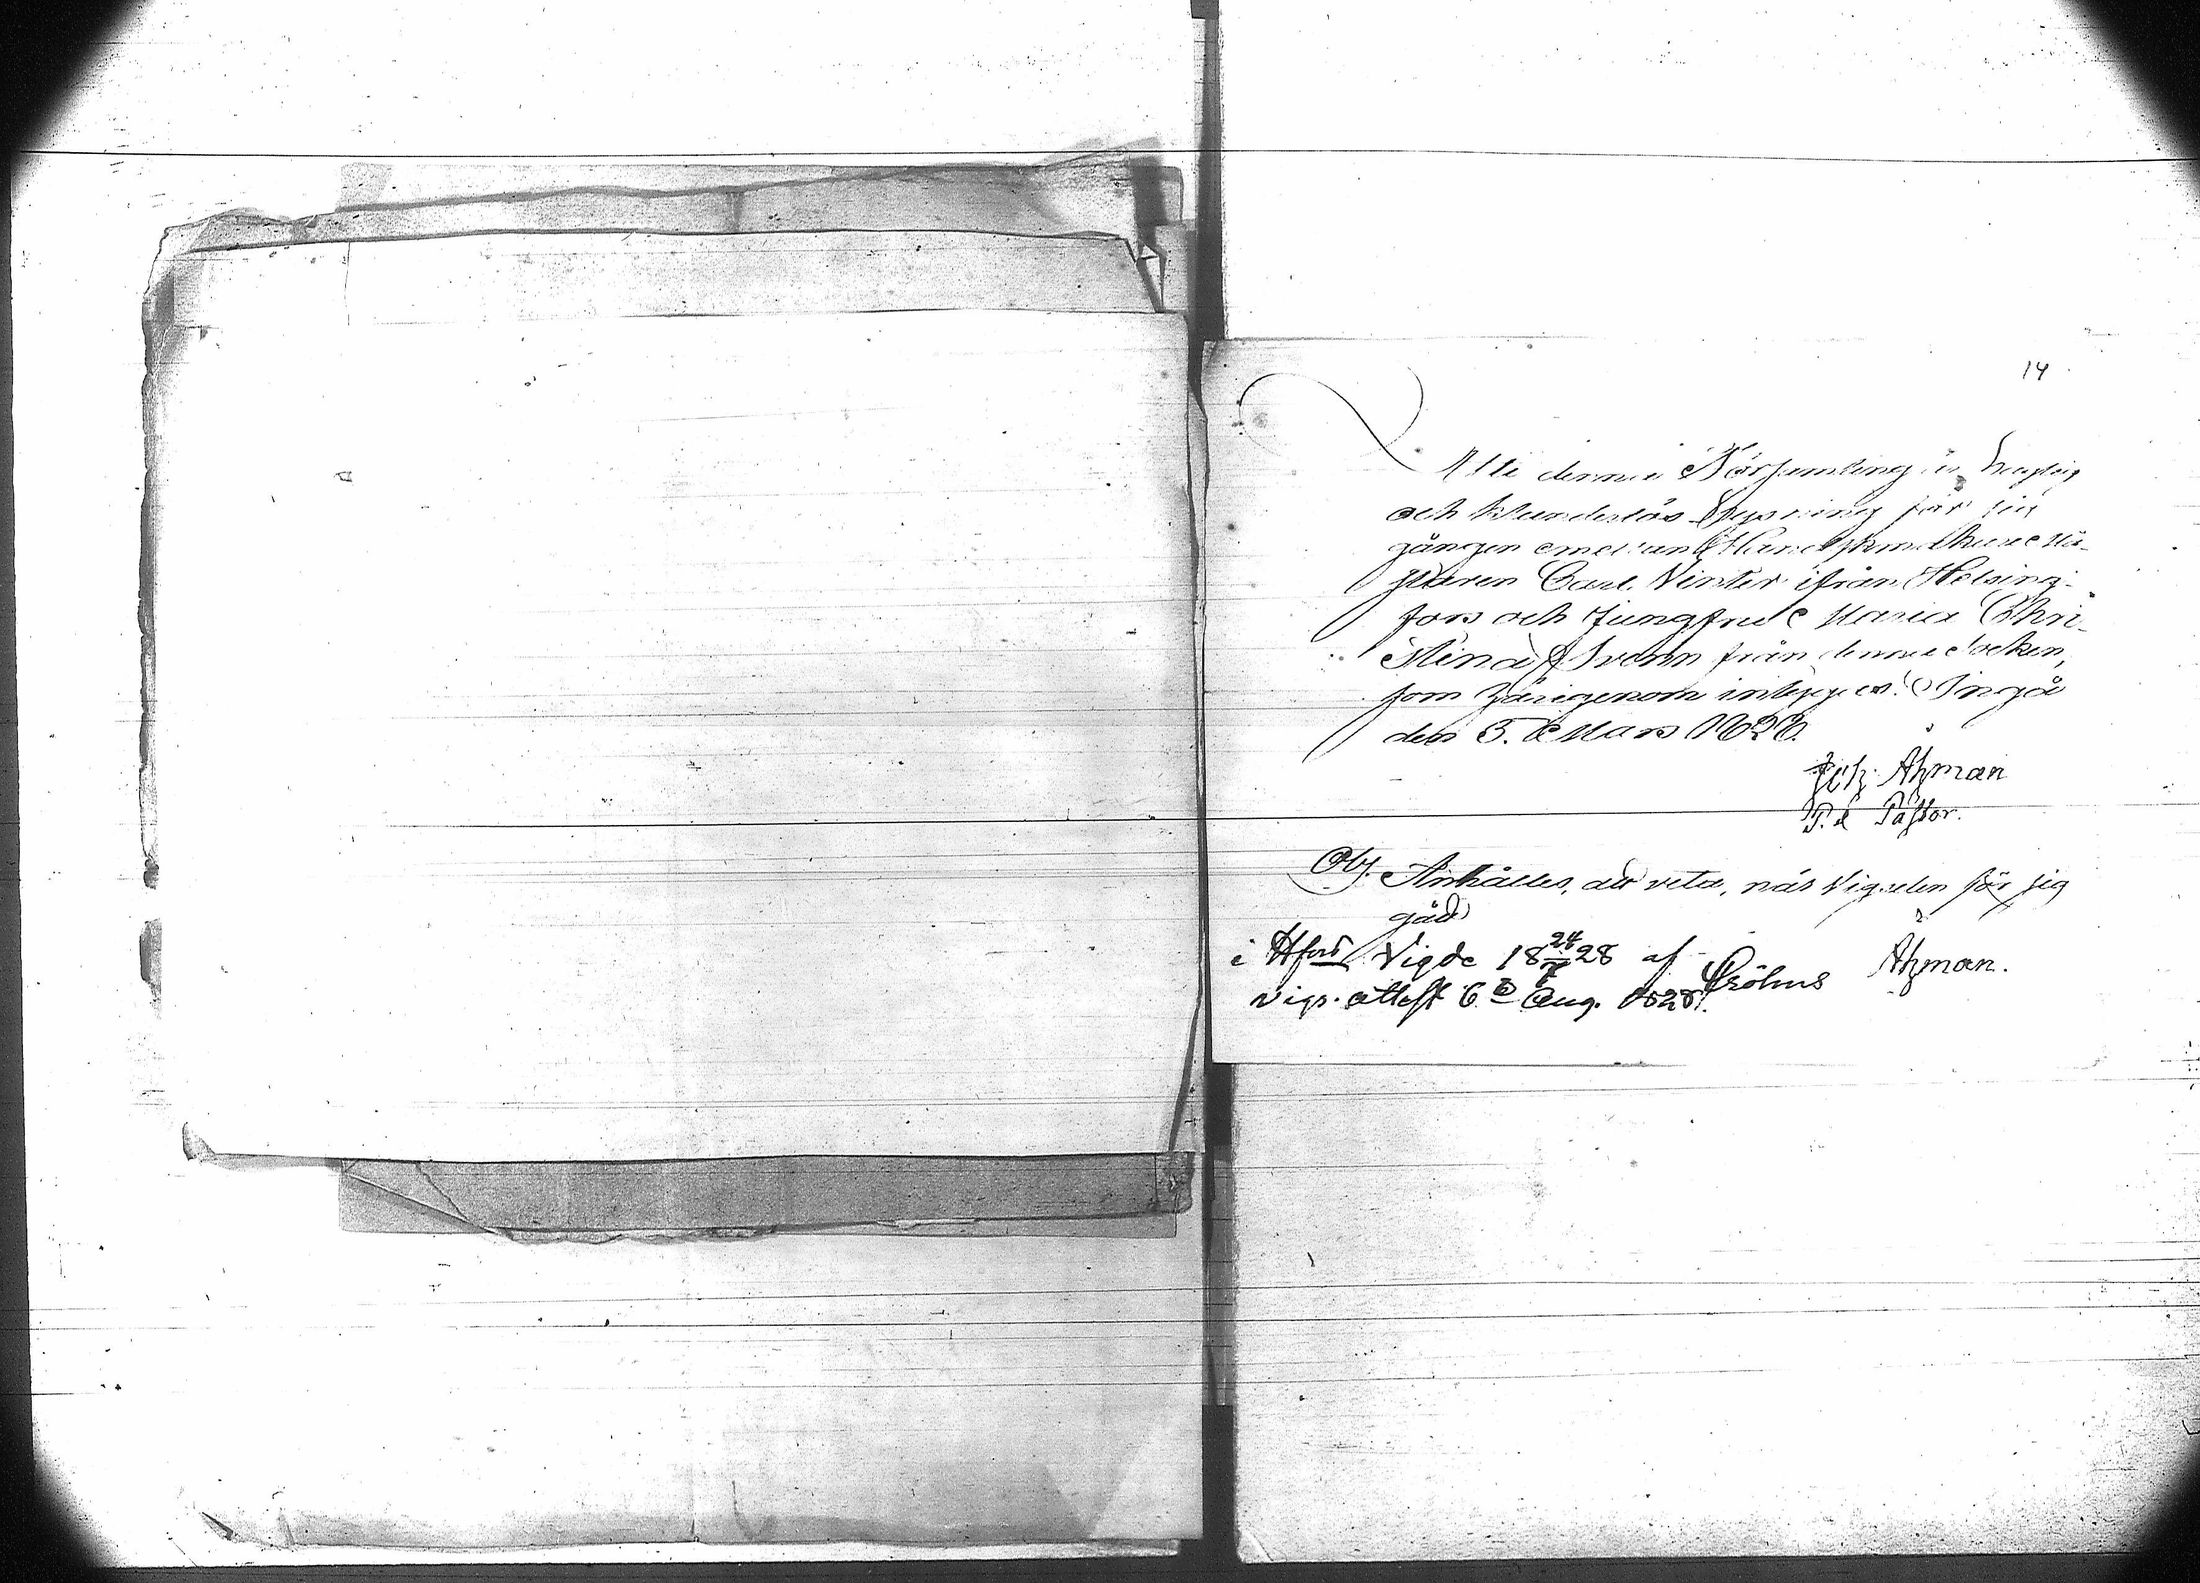 14
Uti denna Församling är laglig
och klanderlös Lysning för sig
gången emellan Handskmakaremä-
staren Carl Winter ifrån Helsing-
fors och Jungfru Maria Chri-
stina from från denna Socken,
som härigenom intygas. Ingå
den 5. Mars 1828.
Joh. Ahman
P. Pastor.
Obs. Anhålles, att veta, när Vigselen för sig
gådt
Ahman.
i Hfors Vigde 18 24/7 28 af Cröhns
Vigs. attest 6 Aug. 1828.